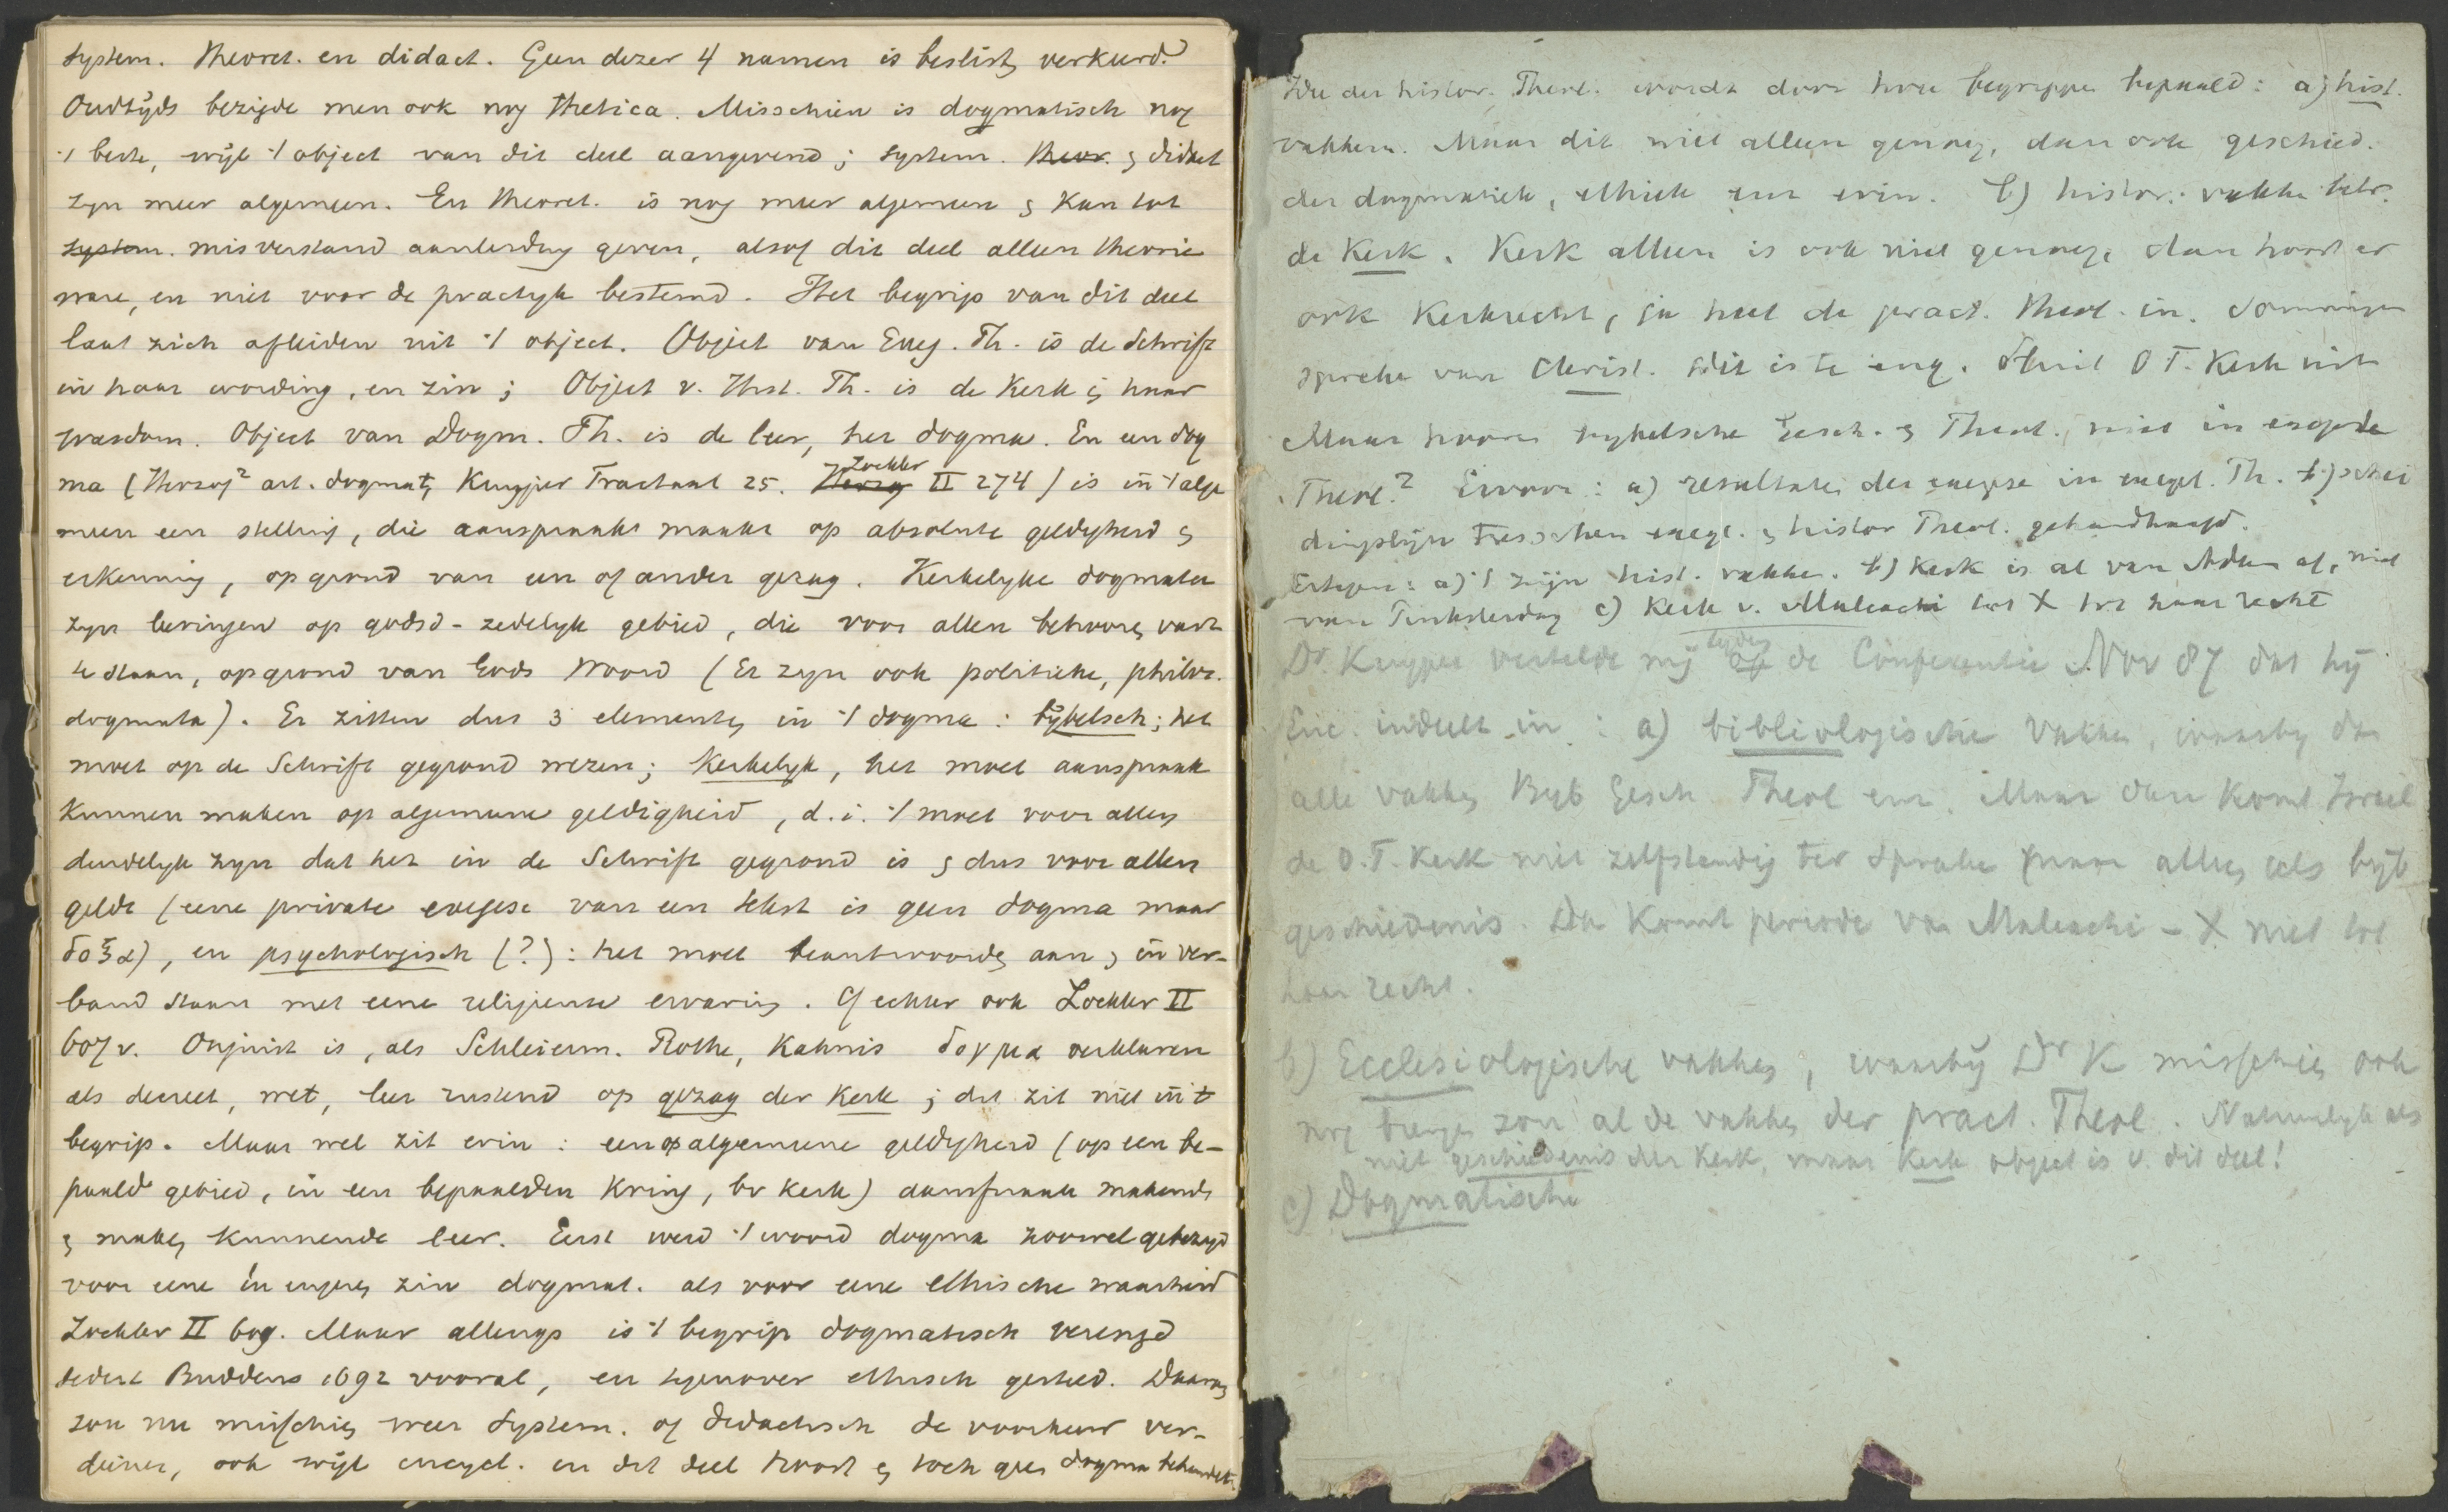 system. theoret. en didact. Geen dezer 4 namen is beslist verkeerd.
Oudtijds bezigde men ook nog thetica. Misschien is dogmatisch nog
't beste, wijl 't object van dit deel aangevend; system. theor. & didact
zyn meer algemeen. En theoret. is nog meer algemeen & kan tot
system. misverstand aanleiding geven, alsof dit deel alleen theorie
ware, en niet voor de practyk bestemd. Het begrip van dit deel
laat zich afleiden uit 't object. Object van Exeg. Th. is de Schrift
in haar wording, en zin; Object v. Hist. Th. is de Kerk & haar
wasdom. Object van Dogm. Th. is de leer, het dogma. En een dog
ma (Herzog² art. dogmat, Kuyper Tractaat 25. Herzog Zockler II 274) is in 't alge
meen een stelling, die aanspraak maakt op absolute geldigheid &
erkenning, op grond van een of ander gezag. Kerkelyke dogmata
zyn leeringen op godsd-zedelyk gebied, die voor allen behooren vast
te staan, op grond van Gods Woord (Er zyn ook politieke, philos.
dogmata). Er zitten dus 3 elementen in 't dogma: bybelsch; het
moet op de Schrift gegrond wezen; Kerkelyk, het moet aanspraak
kunnen maken op algemeene geldigheid, d.i. 't moet voor allen
duidelyk zyn dat het in de Schrift gegrond is & dus voor allen
geldt (eene private exegese van een tekst is geen dogma maar
δοξα), en psychologisch (?): het moet beantwoorden aan & in ver-
band staan met eene religieuse ervaring. Cf echter ook Zockler II
607 v. Onjuist is, als Schleierm. Rothe, Kahnis δογμα verklaren
als decreet, wet, leer rustend op gezag der Kerk; dat zit niet in t
begrip. Maar wel zit erin: een op algemeene geldigheid (op een be-
paald gebied, in een bepaalden kring, bv Kerk) aanspraak makende
& maken kunnende leer. Eerst werd 't woord dogma zoowel gebezigd
voor eene in engeren zin dogmat. als voor eene ethische waarheid
Zockler II 609. Maar allengs is 't begrip dogmatisch verengd
sedert Buddeus 1692 vooral, en tegenover ethisch gesteld. Daarom
zou nu misschien weer system. of didactisch de voorkeur ver-
dienen, ook wijl encycl. en dit deel hoort & toch geen dogma behandelt.
Idee der histor. Theol. wordt door twee begrippen bepaald: a) hist.
vakken. Maar dit niet alleen genoeg, dan ook geschied.
der dogmatiek, ethiek enz erin. b) histor. vakken betr.
de Kerk. Kerk alleen is ook niet genoeg, dan hoort er
ook Kerkrecht, ja heel de pract. theol. in. Sommigen
spreken van Christ. dit is te eng. Sluit O T. Kerk uit
Maar hooren bybelsche Gesch. & Theol. niet in exeget.
Theol.? Ervoor: a) resultaten der exegese in exeget. Th. b) schei
dingslijn tusschen exeget. & histor Theol. gehandhaafd.
Ertegen: a) 't zijn hist. vakken. b) Kerk is al van Adam af, niet
van Pinksterdag c) Kerk v. Maleachi tot X tot haar recht
Dr. Kuyper vertelde mij op tydens de Conferentie Nov 87 dat hij
Enc. indeelt in: a) bibliologische vakken, waarby dan
alle vakken Byb Gesch Theol enz. Maar dan komt Israel
de O.T. Kerk niet zelfstandig ter sprake maar alleen als byb
geschiedenis. Da komt periode van Maleachi - X niet tot
haar recht.
b) Ecclesiologische vakken, waarby Dr K misschien ook
nog brengen zou al de vakken der pract. Theol. Natuurlyk als
niet geschiedenis der Kerk, maar Kerk object is v. dit deel!
c) Dogmatische